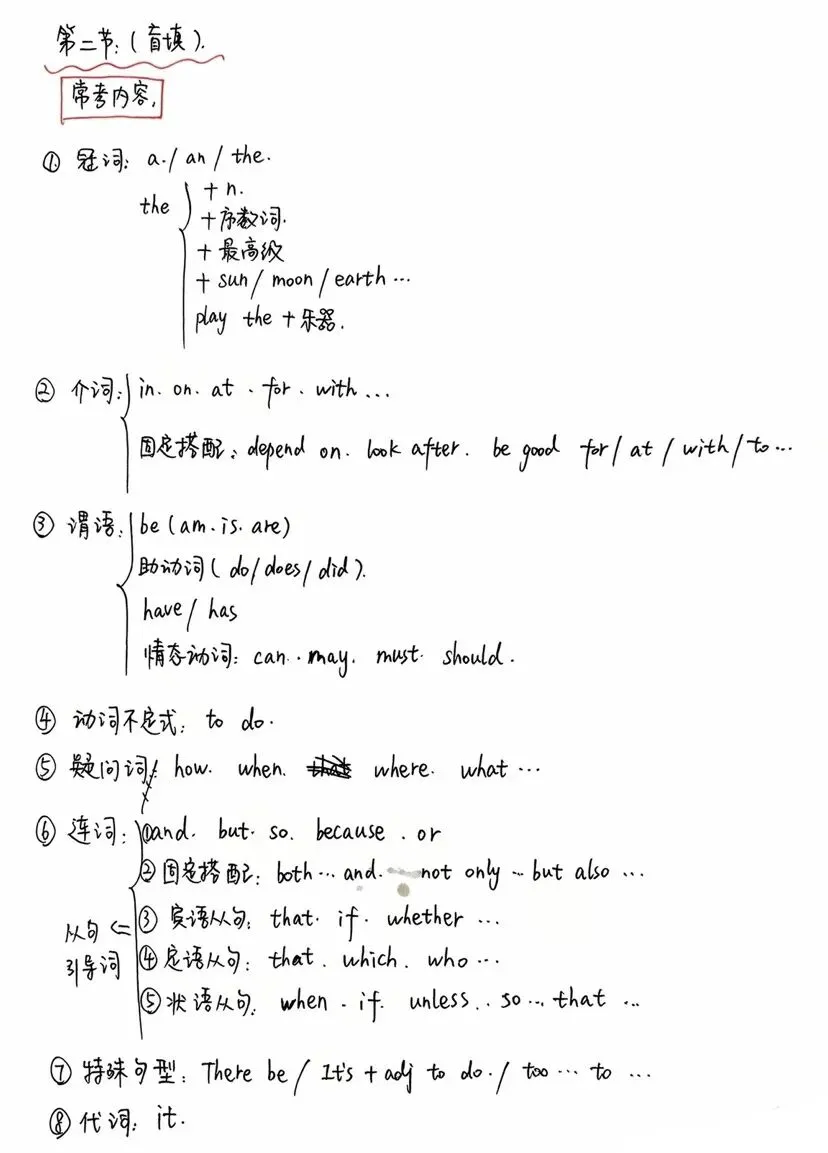 第二节:(盲填).
常考内容,
① 冠词: a./ an / the.
the { + n.
+ 序数词.
+ 最高级
+ sun / moon / earth …
play the + 乐器.
② 介词: { in. on. at . for . with …
固定搭配: depend on. look after. be good for / at / with / to …
③ 谓语: { be (am. is. are)
助动词 ( do / does / did ).
have / has
情态动词: can . may. must. should .
④ 动词不定式: to do.
⑤ 疑问词: how. when. where. what …
⑥ 连词: { ①and. but. so. because . or
② 固定搭配: both … and. not only … but also …
从句引导词 <= ③ 宾语从句: that. if. whether …
④ 定语从句: that . which . who …
⑤ 状语从句: when . if. unless . so … that …
⑦ 特殊句型: There be / It's + adj to do . / too … to …
⑧ 代词: it.